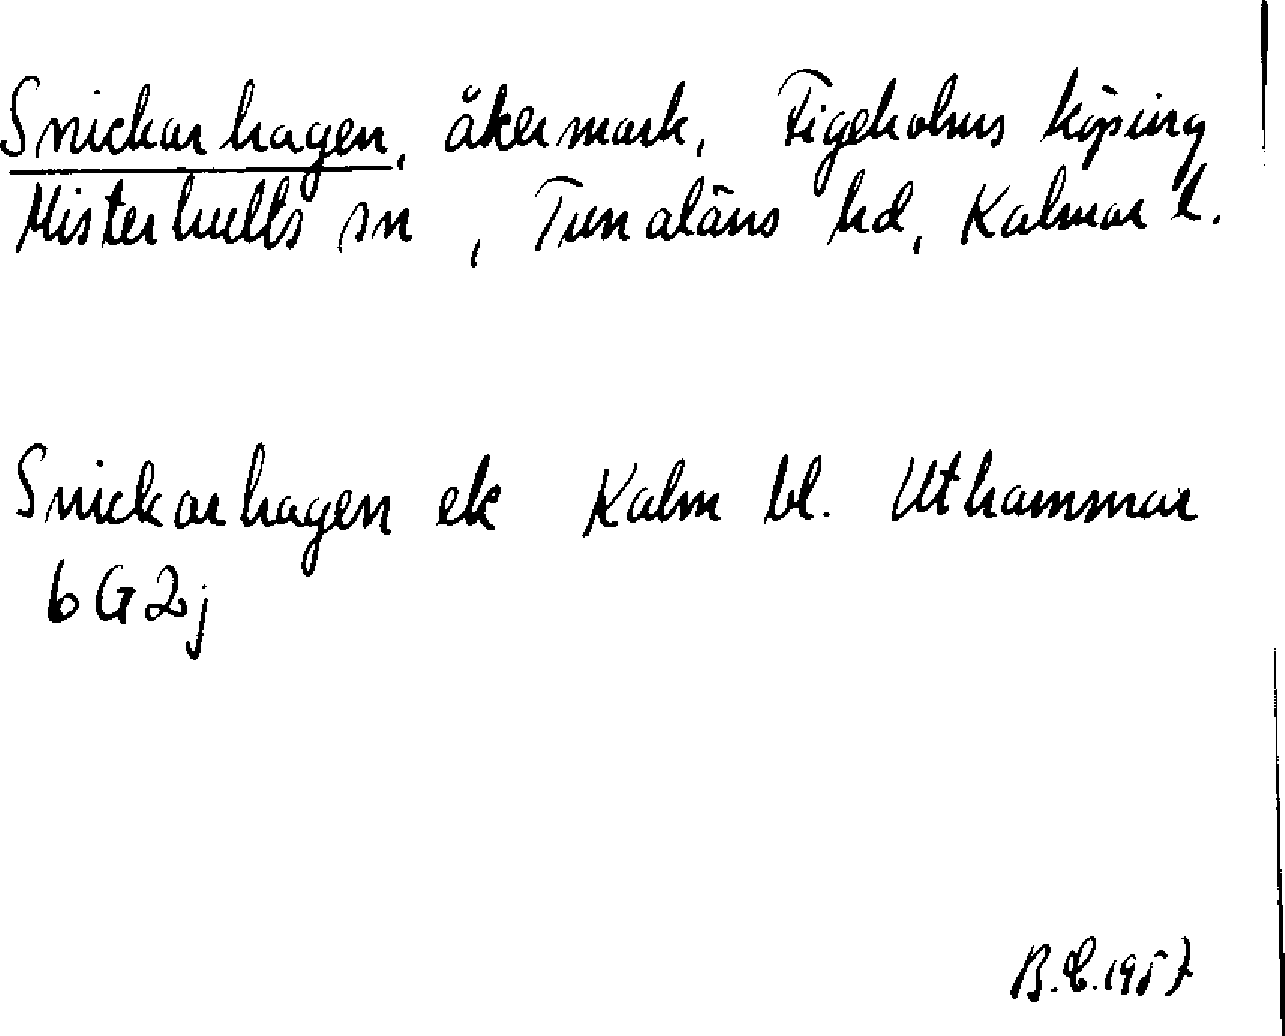 Snickarhagen, åkermark, Figeholms köping
Misterhults sn, Tunaläns hd, Kalmar l.
Snickarhagen ek Kalm bl. Uthammar
6G2j
B.L.1957